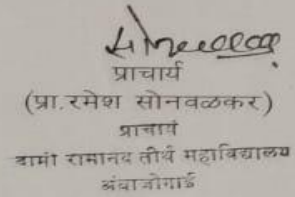 प्राचार्य
(प्रा.रमेश सोनवळकर)
प्राचार्य
वामी रामानंद तीर्थ महाविद्यालय
अंबाजोगाई